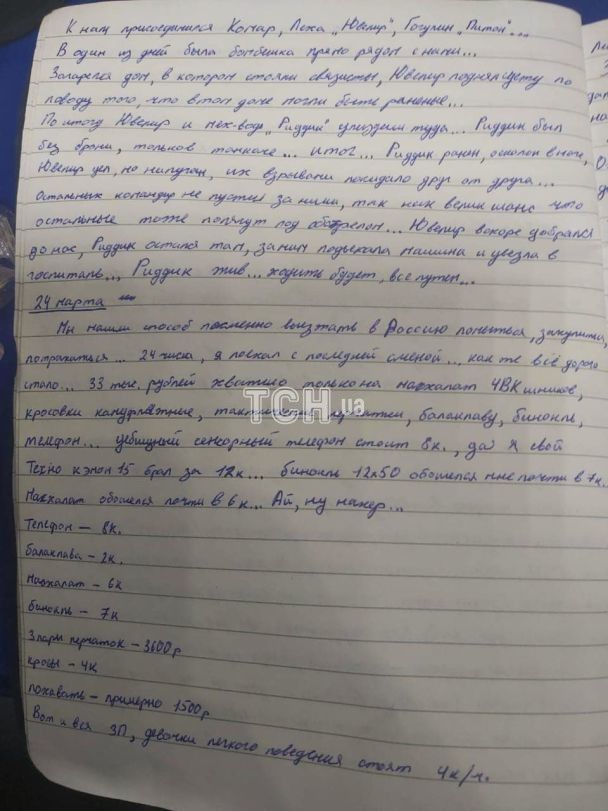 К нам присоединился Комар, Леха "Ювелир", Гогулин "Питон"...
В один из дней была бомбёшка прямо рядом с нами...
Загорелся дом, в котором стояли связисты, Ювелир поднял суету по
поводу того, что в том доме могли быть раненые...
По итогу Ювелир и мех-вод "Риддик" туда... Риддик был
без брони, только в ... итог... Риддик ранен, осколок в ноге,
Ювелир цел, но напуган, их взрывами покидало друг от друга...
Остальных командир не пустил за ними, так как велик шанс что
остальные тоже попадут под обстрелом... Ювелир вскоре добрался
до нас, Риддик остался там, за ним подъехала машина и увезла в
госпиталь... Риддик жив... ходить будет, всё путём...
24 марта
Мы нашли способ посменно выезжать в Россию помыться, закупиться,
потрахаться... 24 числа, я поехал с последней сменой... как же всё дорого
стало... 33 тыс. рублей хватило только на масхалат ЧВКшников,
кросовки камуфляжные, тактические перчатки, балаклаву, бинокль,
телефон... уебищный сенсорный телефон стоит 8к., да я свой
Техно кэмон 15 брал за 12к... бинокль 12х50 обошелся мне почти в 7к.
Масхалат обошелся почти в 6к... Ай, ну нахер...
Телефон – 8к.
балаклава – 2к.
масхалат – 6к
бинокль – 7к
3 пары перчаток – 3600р
кросы – 4к
похавать – примерно 1500р
Вот и вся ЗП, девочки легкого поведения стоят 4к/ч.
ТСН.ua